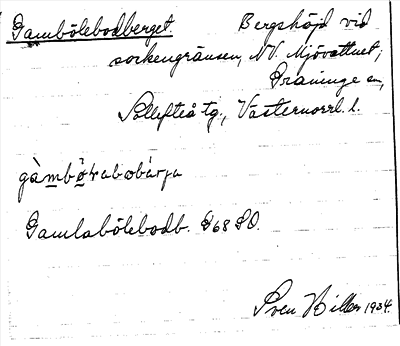 Gambölebodberget. Bergshöjd vid
sockengränsen, NV. Mjövattnet;
Graninge sn,
Sollefteå tg., Västernorrl. l.
gàmbö̀ɽabobárja
Gamlabölebodb. 68 SO.
Sven Hiller 1934.